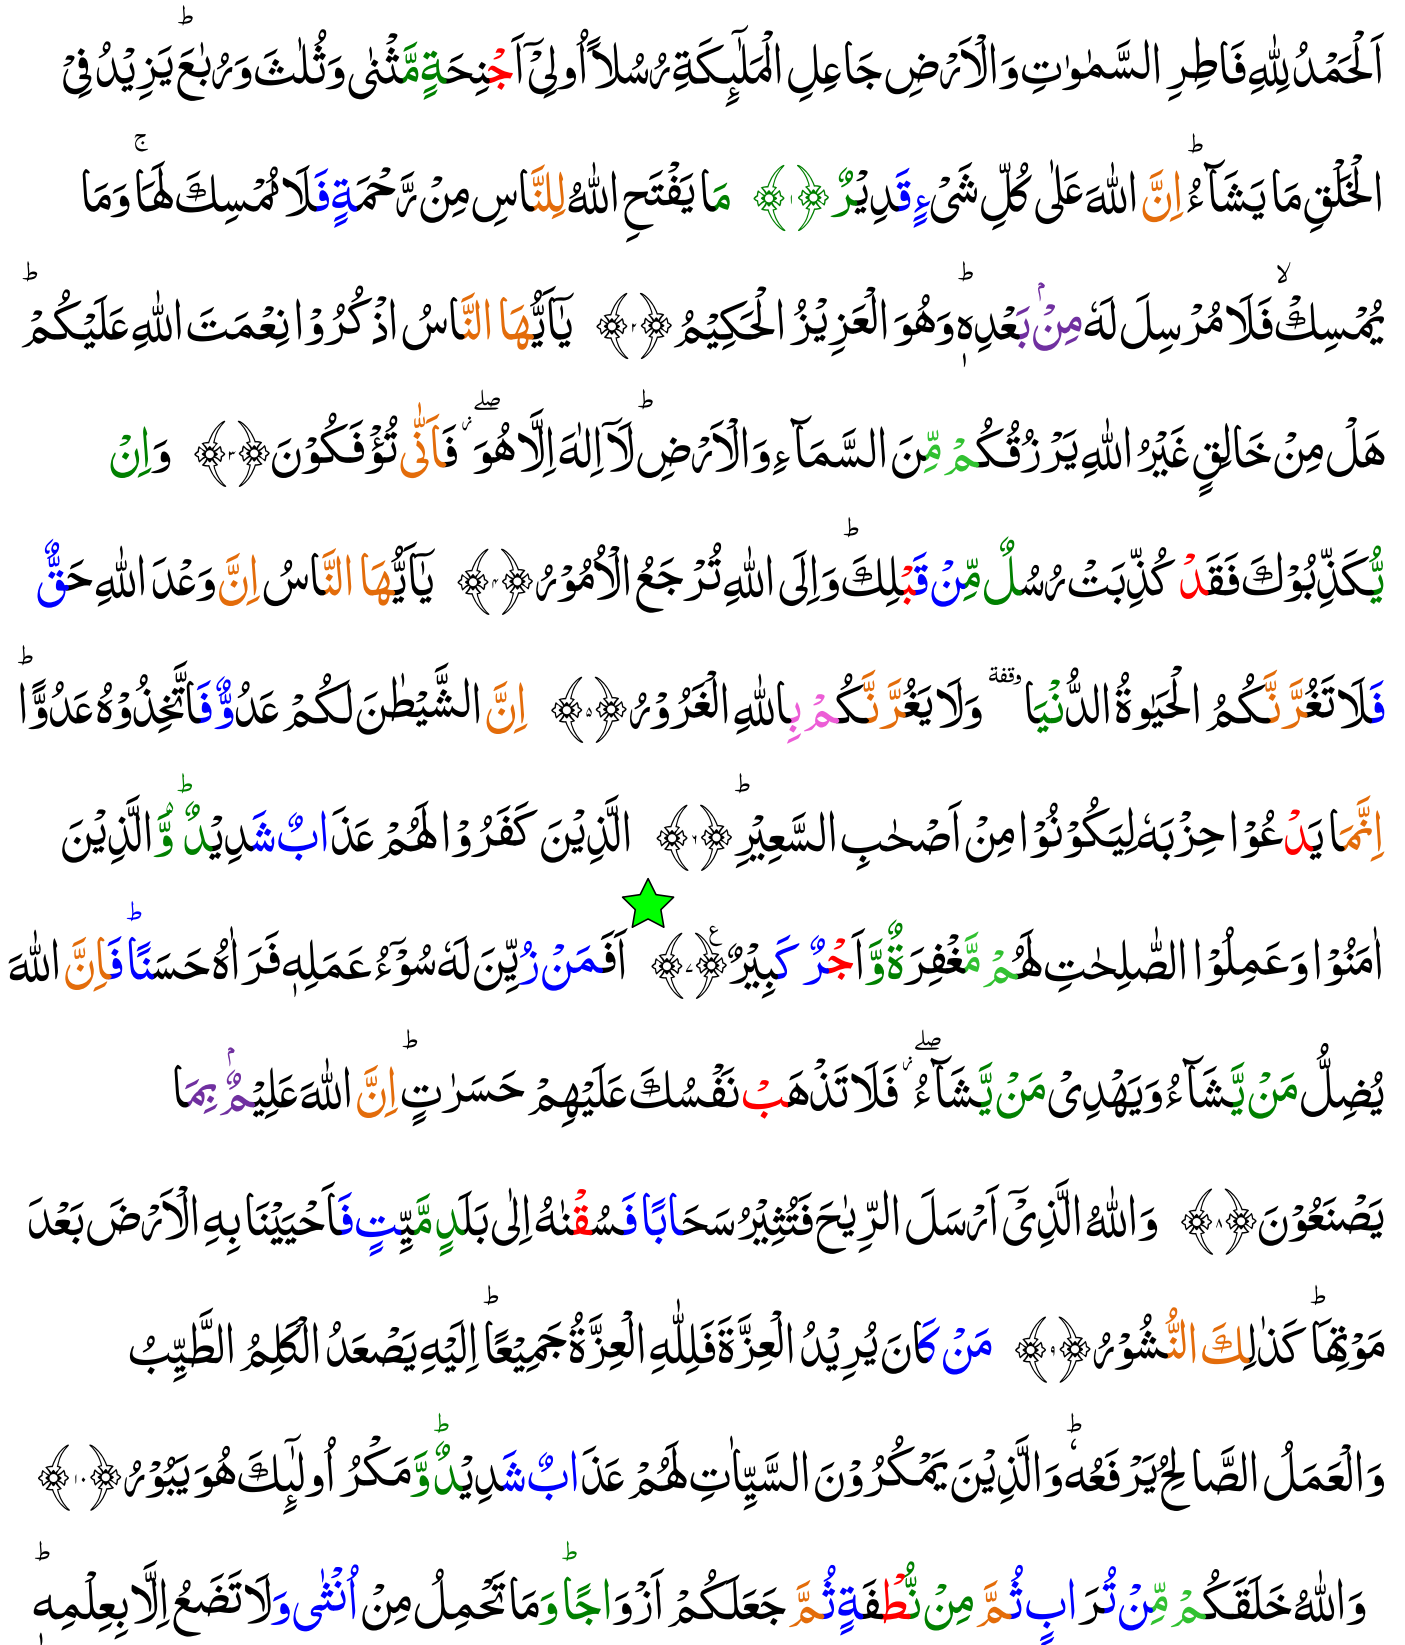 اَلْحَمْدُ لِلّٰهِ فَاطِرِ السَّمٰوٰتِ وَالْاَرْضِ جَاعِلِ الْمَلٰٓئِكَةِ رُسُلًا اُولِیْۤ اَجْنِحَةٍ مَّثْنٰى وَثُلٰثَ وَرُبٰعَ ؕ یَزِیْدُ فِی
الْخَلْقِ مَا یَشَآءُ ؕ اِنَّ اللّٰهَ عَلٰى كُلِّ شَیْءٍ قَدِیْرٌ ﴿۱﴾ مَا یَفْتَحِ اللّٰهُ لِلنَّاسِ مِنْ رَّحْمَةٍ فَلَا مُمْسِكَ لَهَا ۚ وَمَا
یُمْسِكْ ۙ فَلَا مُرْسِلَ لَهٗ مِنْۢ بَعْدِهٖ ؕ وَهُوَ الْعَزِیْزُ الْحَكِیْمُ ﴿۲﴾ یٰۤاَیُّهَا النَّاسُ اذْكُرُوْا نِعْمَتَ اللّٰهِ عَلَیْكُمْ ؕ
هَلْ مِنْ خَالِقٍ غَیْرُ اللّٰهِ یَرْزُقُكُمْ مِّنَ السَّمَآءِ وَالْاَرْضِ ؕ لَاۤ اِلٰهَ اِلَّا هُوَ ۖ۫ فَاَنّٰى تُؤْفَكُوْنَ ﴿۳﴾ وَاِنْ
یُّكَذِّبُوْكَ فَقَدْ كُذِّبَتْ رُسُلٌ مِّنْ قَبْلِكَ ؕ وَاِلَى اللّٰهِ تُرْجَعُ الْاُمُوْرُ ﴿۴﴾ یٰۤاَیُّهَا النَّاسُ اِنَّ وَعْدَ اللّٰهِ حَقٌّ
فَلَا تَغُرَّنَّكُمُ الْحَیٰوةُ الدُّنْیَا وقفة وَلَا یَغُرَّنَّكُمْ بِاللّٰهِ الْغَرُوْرُ ﴿۵﴾ اِنَّ الشَّیْطٰنَ لَكُمْ عَدُوٌّ فَاتَّخِذُوْهُ عَدُوًّا ؕ
اِنَّمَا یَدْعُوْا حِزْبَهٗ لِیَكُوْنُوْا مِنْ اَصْحٰبِ السَّعِیْرِ ؕ ﴿۶﴾ الَّذِیْنَ كَفَرُوْا لَهُمْ عَذَابٌ شَدِیْدٌ ؕ وَّالَّذِیْنَ
اٰمَنُوْا وَعَمِلُوا الصّٰلِحٰتِ لَهُمْ مَّغْفِرَةٌ وَّاَجْرٌ كَبِیْرٌ ﴿۷﴾ع اَفَمَنْ زُیِّنَ لَهٗ سُوْٓءُ عَمَلِهٖ فَرَاٰهُ حَسَنًا ؕ فَاِنَّ اللّٰهَ
یُضِلُّ مَنْ یَّشَآءُ وَیَهْدِیْ مَنْ یَّشَآءُ ۖ۫ فَلَا تَذْهَبْ نَفْسُكَ عَلَیْهِمْ حَسَرٰتٍ ؕ اِنَّ اللّٰهَ عَلِیْمٌۢ بِمَا
یَصْنَعُوْنَ ﴿۸﴾ وَاللّٰهُ الَّذِیْۤ اَرْسَلَ الرِّیٰحَ فَتُثِیْرُ سَحَابًا فَسُقْنٰهُ اِلٰى بَلَدٍ مَّیِّتٍ فَاَحْیَیْنَا بِهِ الْاَرْضَ بَعْدَ
مَوْتِهَا ؕ كَذٰلِكَ النُّشُوْرُ ﴿۹﴾ مَنْ كَانَ یُرِیْدُ الْعِزَّةَ فَلِلّٰهِ الْعِزَّةُ جَمِیْعًا ؕ اِلَیْهِ یَصْعَدُ الْكَلِمُ الطَّیِّبُ
وَالْعَمَلُ الصَّالِحُ یَرْفَعُهٗ ؕ وَالَّذِیْنَ یَمْكُرُوْنَ السَّیِّاٰتِ لَهُمْ عَذَابٌ شَدِیْدٌ ؕ وَّمَكْرُ اُولٰٓئِكَ هُوَ یَبُوْرُ ﴿۱۰﴾
وَاللّٰهُ خَلَقَكُمْ مِّنْ تُرَابٍ ثُمَّ مِنْ نُّطْفَةٍ ثُمَّ جَعَلَكُمْ اَزْوَاجًا ؕ وَمَا تَحْمِلُ مِنْ اُنْثٰى وَلَا تَضَعُ اِلَّا بِعِلْمِهٖ ؕ